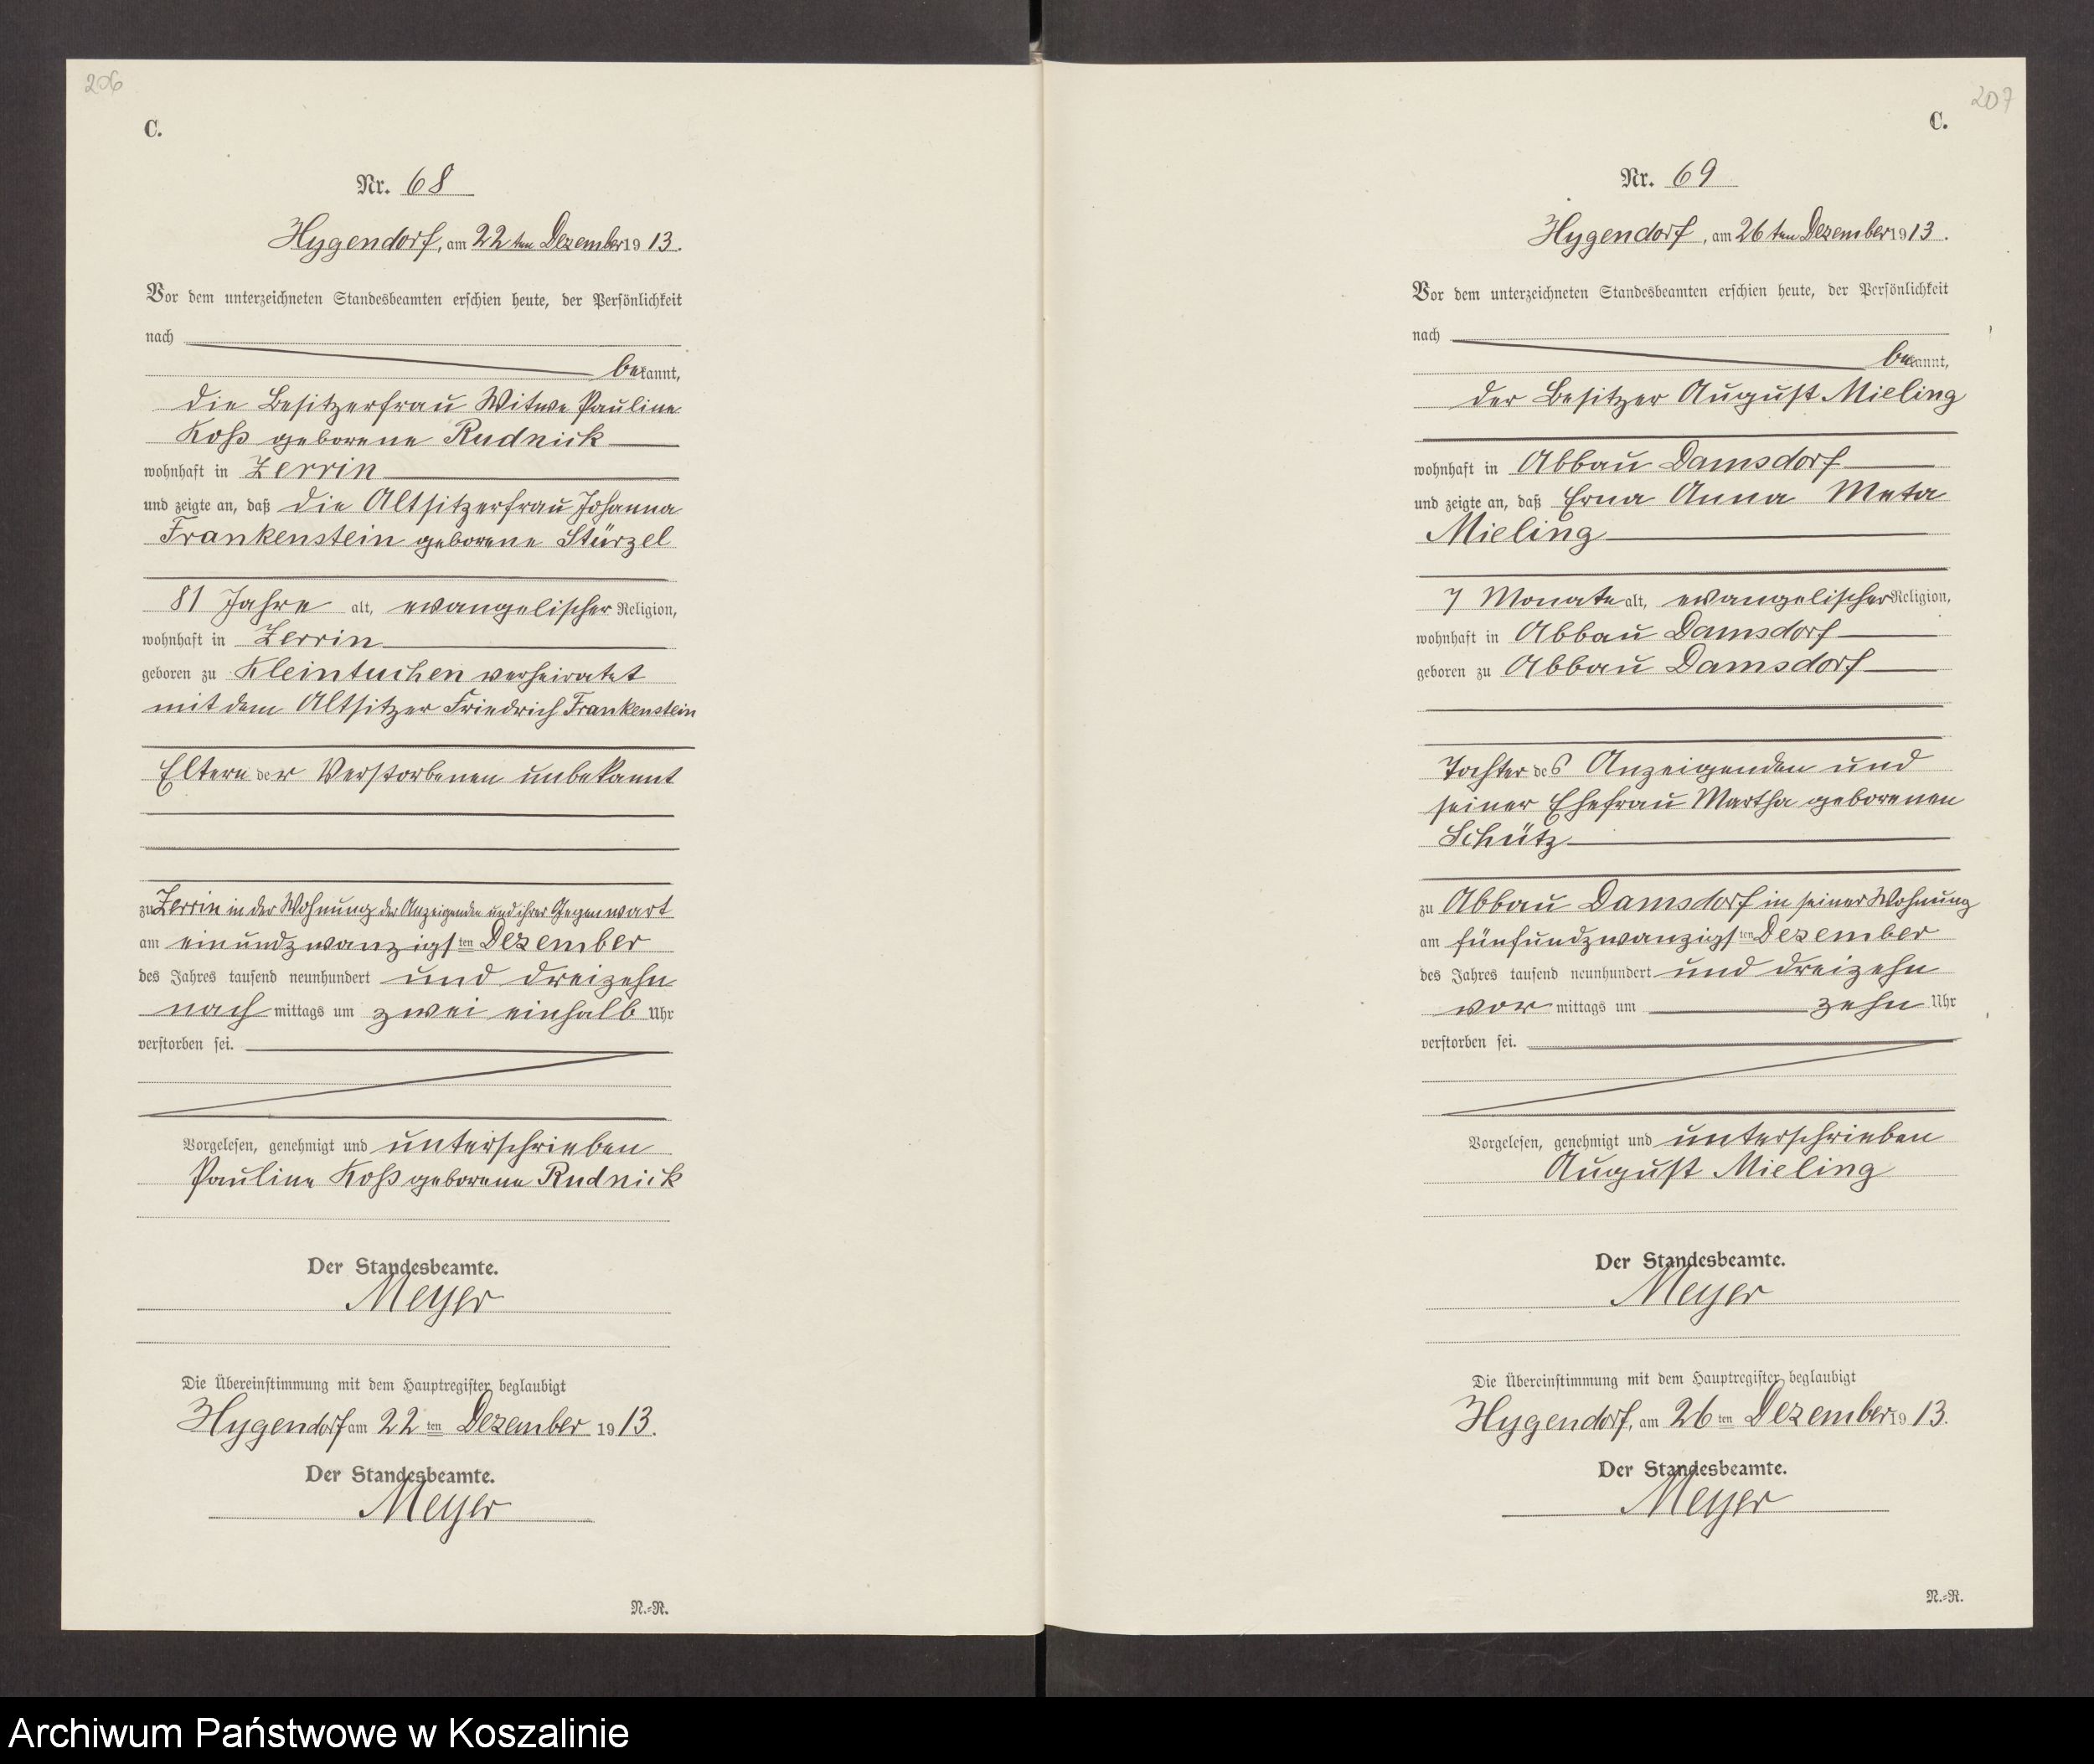 206
C.
Nr. 68
Hygendorf, am 22ten Dezember 1913.
Vor dem unterzeichneten Standesbeamten erschien heute, der Persönlichkeit
nach
bekannt,
die Besitzerfrau Witwe Pauline
Koß geborene Rudnick
wohnhaft in Zerrin
und zeigte an, daß die Altsitzerfrau Johanna
Frankenstein geborene Stürzel
81 Jahre alt, evangelischer Religion,
wohnhaft in Zerrin
geboren zu Kleintuchen verheiratet
mit dem Altsitzer Friedrich Frankenstein
Eltern der Verstorbenen unbekannt
zu Zerrin in der Wohnung der Anzeigenden und ihrer Gegenwart
am einundzwanzigsten Dezember
des Jahres tausend neunhundert und dreizehn
nach mittags um zwei einhalb Uhr
verstorben sei.
Vorgelesen, genehmigt und unterschrieben
Pauline Koß geborene Rudnick
Der Standesbeamte.
Meyer
Die Übereinstimmung mit dem Hauptregister beglaubigt
Hygendorf am 22ten Dezember 1913.
Der Standesbeamte.
Meyer
N.=R.
207
C.
Nr. 69
Hygendorf, am 26ten Dezember 1913.
Vor dem unterzeichneten Standesbeamten erschien heute, der Persönlichkeit
nach
bekannt,
der Besitzer August Mieling
wohnhaft in Abbau Damsdorf
und zeigte an, daß Erna Anna Meta
Mieling
7 Monate alt, evangelischer Religion,
wohnhaft in Abbau Damsdorf
geboren zu Abbau Damsdorf
Tochter des Anzeigenden und
seiner Ehefrau Martha geborenen
Schütz
zu Abbau Damsdorf in seiner Wohnung
am fünfundzwanzigsten Dezember
des Jahres tausend neunhundert und dreizehn
vor mittags um zehn Uhr
verstorben sei.
Vorgelesen, genehmigt und unterschrieben
August Mieling
Der Standesbeamte.
Meyer
Die Übereinstimmung mit dem Hauptregister beglaubigt
Hygendorf, am 26ten Dezember 1913.
Der Standesbeamte.
Meyer
N.=R.
Archiwum Państwowe w Koszalinie